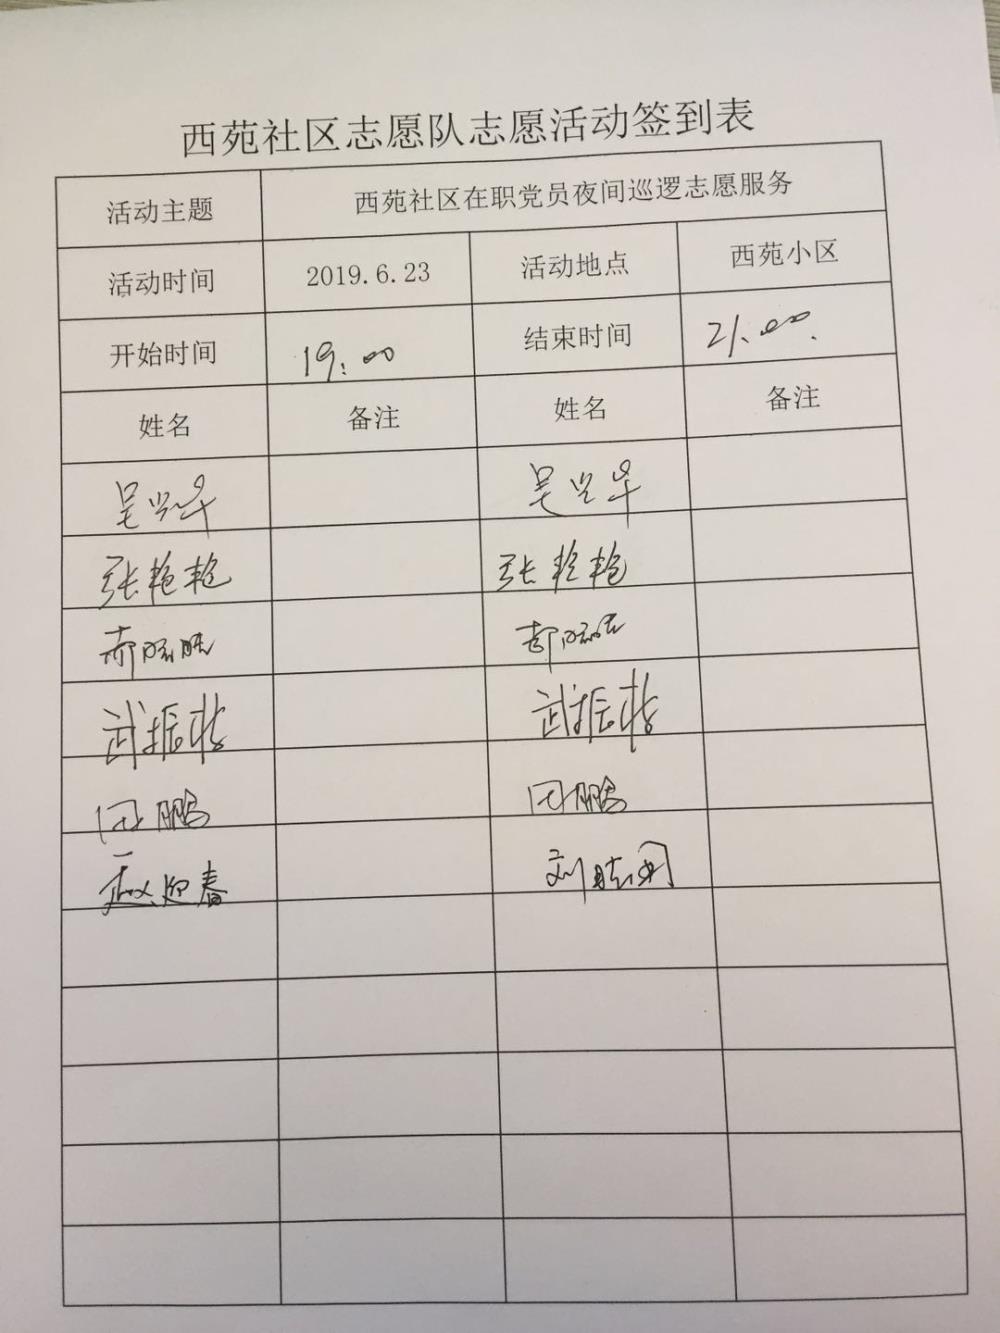 西苑社区志愿队志愿活动签到表
活动主题 西苑社区在职党员夜间巡逻志愿服务
活动时间 2019.6.23 活动地点 西苑小区
开始时间 19:00 结束时间 21.00.
姓名 备注 姓名 备注
吴兴华 吴兴华
张艳艳 张艳艳
郝晓晓 郝晓
武振 武振
田鹏 田鹏
赵迎春 刘晓闲